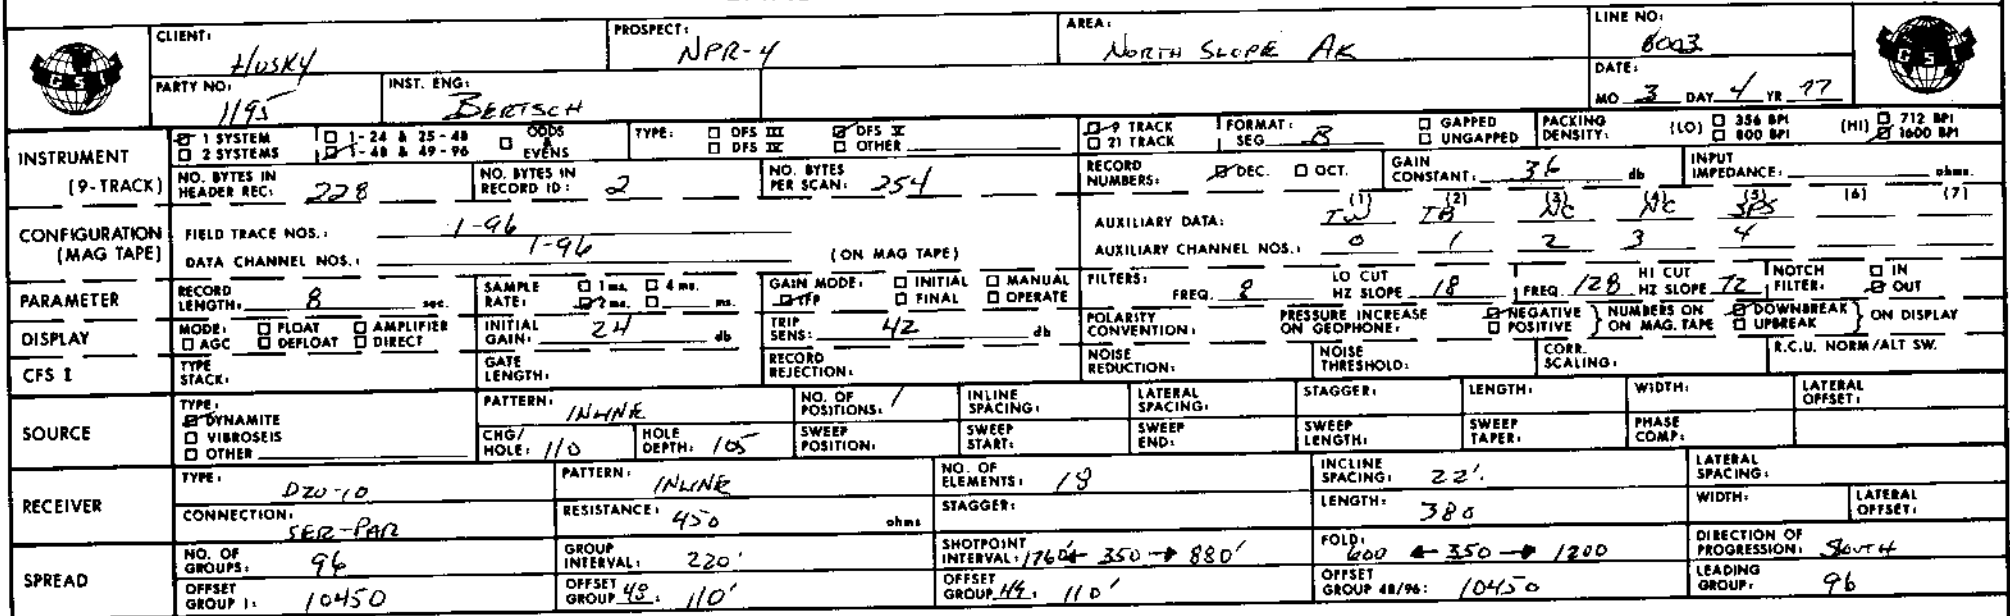 CLIENT: HUSKY PROSPECT: NPR-4 AREA: NORTH SLOPE AK LINE NO: 8003
GSI GSI
PARTY NO: 1195 INST. ENG: BERTSCH DATE: MO 3 DAY 4 YR 77
INSTRUMENT (9-TRACK)
1 SYSTEM 1-24 & 25-48 ODDS & EVENS TYPE: DFS III DFS V 9 TRACK FORMAT: GAPPED PACKING DENSITY: (LO) 356 BPI (HI) 712 BPI
2 SYSTEMS 1-48 & 49-96 DFS IV OTHER 21 TRACK SEG B UNGAPPED 800 BPI 1600 BPI
NO. BYTES IN HEADER REC: 228 NO. BYTES IN RECORD ID: 2 NO. BYTES PER SCAN: 254 RECORD NUMBERS: DEC. OCT. GAIN CONSTANT: 36 db INPUT IMPEDANCE: ohms.
CONFIGURATION (MAG TAPE)
FIELD TRACE NOS.: 1-96 AUXILIARY DATA: (1) (2) TB (3) NC (4) NC (5) (6) (7)
DATA CHANNEL NOS.: 1-96 (ON MAG TAPE) AUXILIARY CHANNEL NOS.: 0 1 2 3 4
PARAMETER RECORD LENGTH: 8 sec. SAMPLE RATE: 1 ms. 4 ms. 2 ms. ms. GAIN MODE: INITIAL MANUAL IFP FINAL OPERATE FILTERS: FREQ. 8 LO CUT HZ SLOPE 18 FREQ. 128 HI CUT HZ SLOPE 72 NOTCH FILTER: IN OUT
DISPLAY MODE: FLOAT AMPLIFIER AGC DEFLOAT DIRECT INITIAL GAIN: 24 db TRIP SENS: 42 db POLARITY CONVENTION: PRESSURE INCREASE ON GEOPHONE: NEGATIVE POSITIVE NUMBERS ON ON MAG. TAPE DOWNBREAK UPBREAK ON DISPLAY
CFS I TYPE STACK: GATE LENGTH: RECORD REJECTION: NOISE REDUCTION: NOISE THRESHOLD: CORR. SCALING: R.C.U. NORM/ALT SW.
SOURCE TYPE: DYNAMITE VIBROSEIS OTHER
PATTERN: INLINE NO. OF POSITIONS: 1 INLINE SPACING: LATERAL SPACING: STAGGER: LENGTH: WIDTH: LATERAL OFFSET:
CHG/HOLE: 110 HOLE DEPTH: 105 SWEEP POSITION: SWEEP START: SWEEP END: SWEEP LENGTH: SWEEP TAPER: PHASE COMP:
RECEIVER TYPE: DZU-10 PATTERN: INLINE NO. OF ELEMENTS: 18 INCLINE SPACING: 22' LATERAL SPACING:
CONNECTION: SER-PAR RESISTANCE: 450 ohms STAGGER: LENGTH: 380 WIDTH: LATERAL OFFSET:
SPREAD NO. OF GROUPS: 96 GROUP INTERVAL: 220' SHOTPOINT INTERVAL: 1760' ← 350 → 880' FOLD: 600 ← 350 → 1200 DIRECTION OF PROGRESSION: SOUTH
OFFSET GROUP 1: 10450 OFFSET GROUP 48: 110' OFFSET GROUP 49: 110' OFFSET GROUP 48/96: 10450 LEADING GROUP: 96